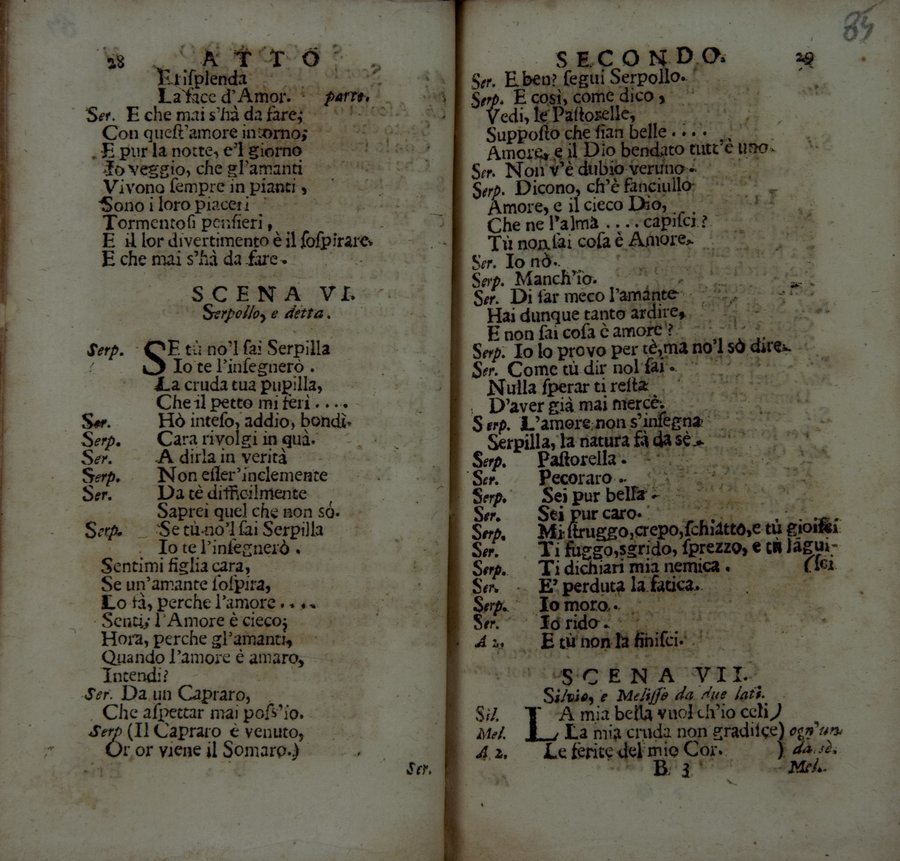 28 ATTO
Eriſplenda
La face d'Amor. parte.
Ser. E che mai s'hà da fare;
Con queſt'amore intorno;
E pur la notte, e'l giorno
Io veggio, che gl'amanti
Vivono ſempre in pianti,
Sono i loro piaceri
Tormentoſi penſieri,
E il lor divertimento è il ſoſpirare.
E che mai s'hà da fare.
SCENA VI.
Serpollo, e detta.
Serp. SE tù no'l ſai Serpilla
Io te l'inſegnerò.
La cruda tua pupilla,
Che il petto mi ferì ....
Ser. Hò inteſo, addio, bondì.
Serp. Cara rivolgi in quà.
Ser. A dirla in verità
Serp. Non eſſer'inclemente
Ser. Da tè difficilmente
Saprei quel che non sò.
Serp. Se tù no'l ſai Serpilla
Io te l'inſegnerò.
Sentimi figlia cara,
Se un'amante ſoſpira,
Lo fà, perche l'amore ....
Senti; l'Amore è cieco;
Hora, perche gl'amanti,
Quando l'amore è amaro,
Intendi?
Ser. Da un Capraro,
Che aſpettar mai poſs'io.
Serp (Il Capraro è venuto,
Or or viene il Somaro.)
Ser.
SECONDO. 29
85
Ser. E ben? ſegui Serpollo.
Serp. E così, come dico,
Vedi, le Paſtorelle,
Suppoſto che ſian belle ....
Amore, e il Dio bendato tutt'è uno.
Ser. Non v'è dubio veruno.
Serp. Dicono, ch'è fanciullo
Amore, e il cieco Dio,
Che ne l'alma .... capiſci?
Tù non ſai coſa è Amore.
Ser. Io nò.
Serp. Manch'io.
Ser. Di far meco l'amante
Hai dunque tanto ardire,
E non ſai coſa è amore?
Serp. Io lo provo per tè, ma no'l sò dire.
Ser. Come tù dir nol ſai.
Nulla ſperar ti reſta
D'aver già mai mercè.
Serp. L'amore non s'inſegna
Serpilla, la natura fà da sè.
Serp. Paſtorella.
Ser. Pecoraro.
Serp. Sei pur bella.
Ser. Sei pur caro.
Serp. Mi ſtruggo, crepo, ſchiatto, e tù gioiſci
Ser. Ti fuggo, sgrido, ſprezzo, e tù lagui-
Serp. Ti dichiari mia nemica. (ſci
Ser. E' perduta la fatica.
Serp. Io moro.
Ser. Io rido.
A 2. E tù non la finiſci.
SCENA VII.
Silvio, e Meliſſe da due lati.
Sil. LA mia bella vuol ch'io celi)
Mel. La mia cruda non gradiſce) ogn'un
A 2. Le ferite del mio Cor. ) da sè.
B 3 Mel.